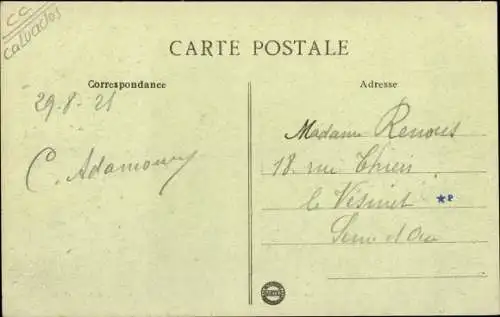 CC
Calvados
CARTE POSTALE
Correspondance
Adresse
29.8.21
C. Adamowy
Madame Renous
18 rue Thiers
le Vésinet
*P
Seine et Oise